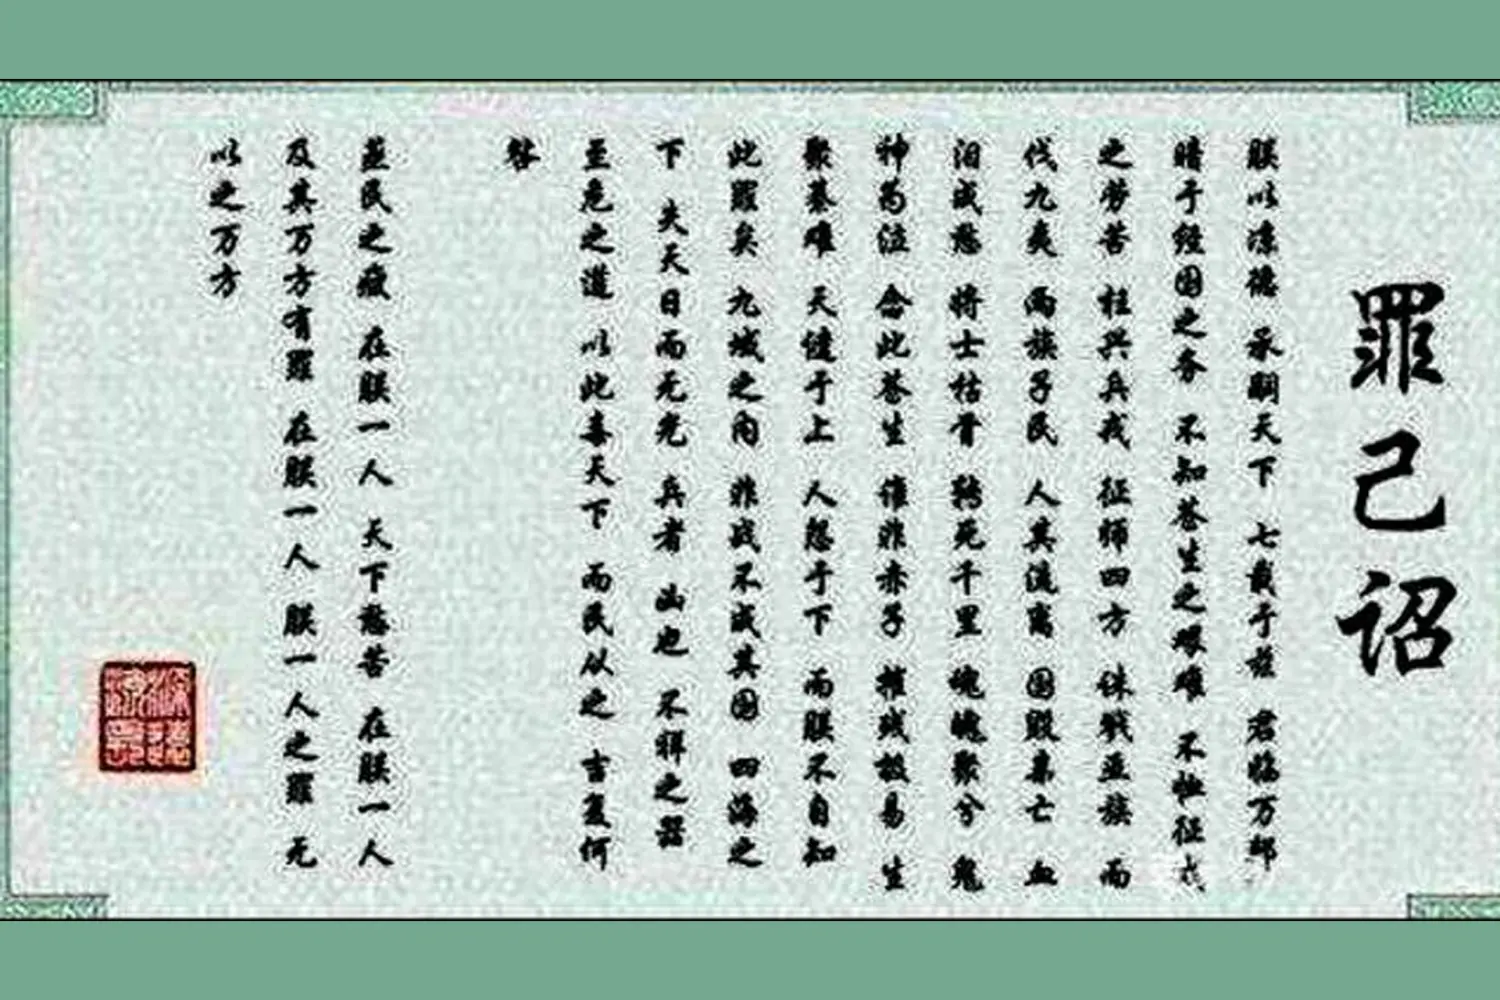 罪己诏
朕以凉德 承嗣天下 七载于兹 君临万邦
暗于经国之务 不知苍生之艰难 不恤征戍
之劳苦 枉兴兵戎 征师四方 诛戮亚族 而
伐九夷 两族子民 人其流离 国毁 亡 血
泪成愁 将士枯骨 转死千里 魂魄聚兮 鬼
神为泣 念此苍生 谁非赤子 摧残极易 生
聚綦难 天谴于上 人怨于下 而朕不自知
此罪矣 九域之内 非战不成其国 四海之
下 失天日而无光 兵者 凶也 不祥之器
至危之道 以此毒天下 而民从之 吉复何
咎
民之 在朕一人 天下愁苦 在朕一人
及其万方有罪 在朕一人 朕一人之罪 无
以之万方